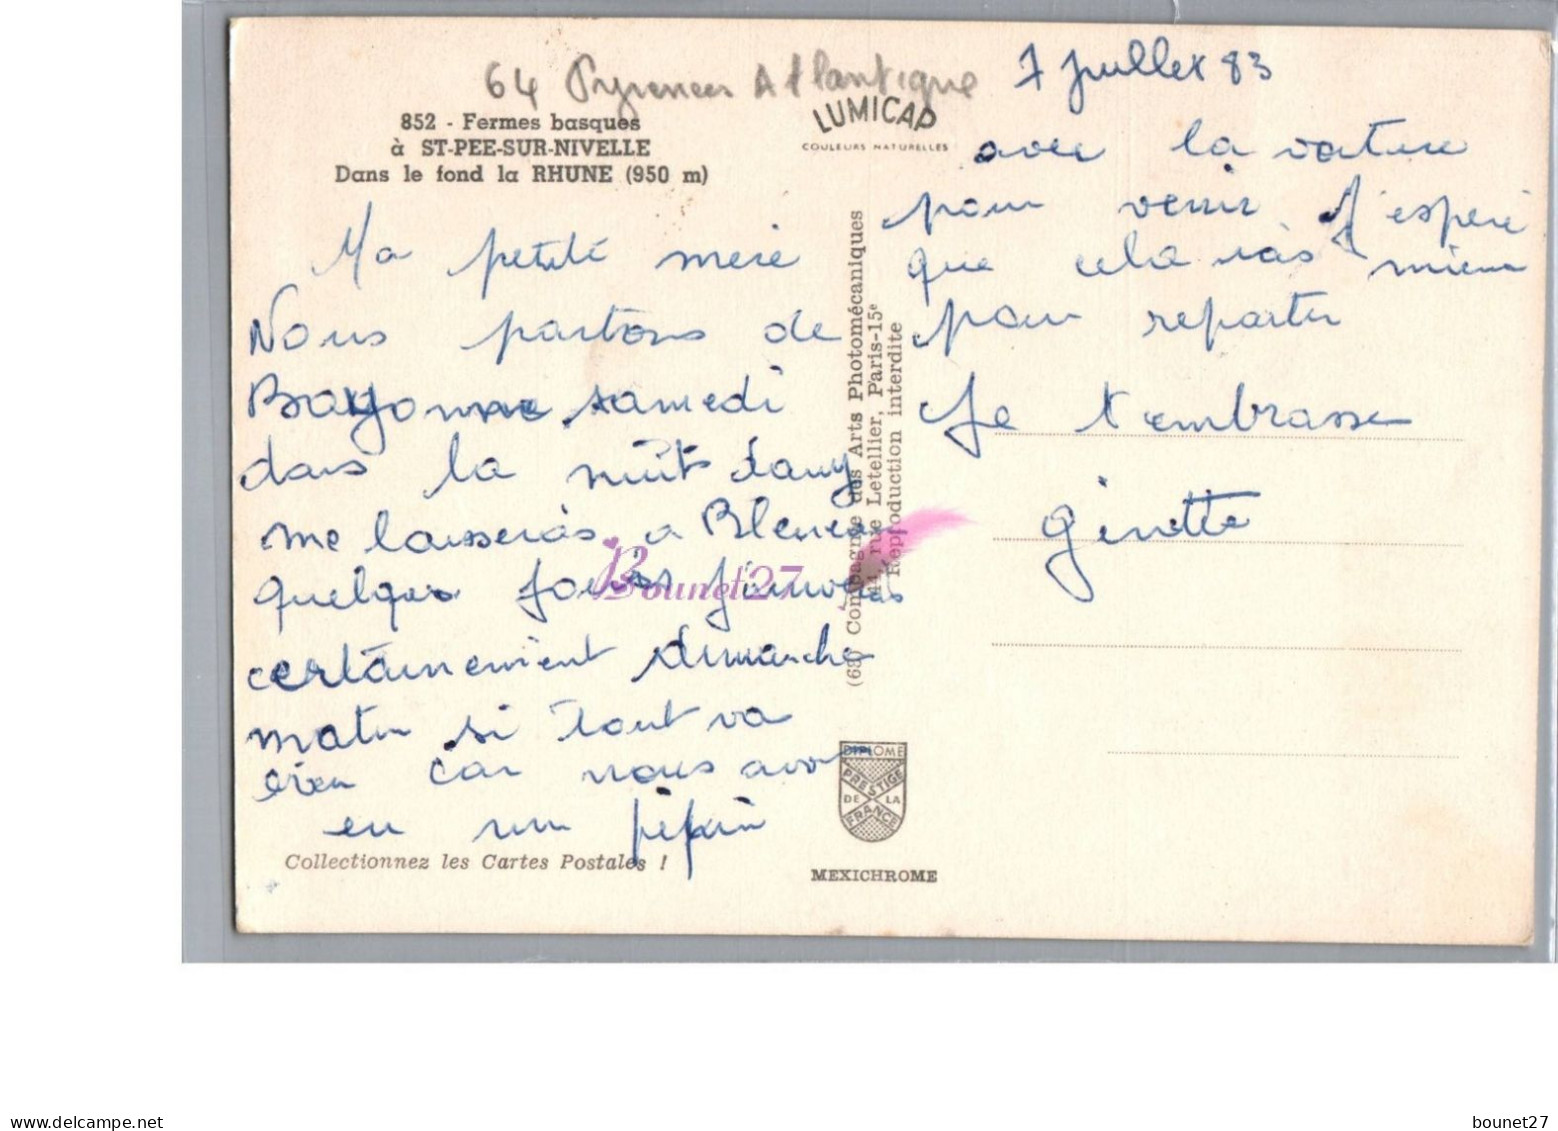 64 Pyrenees Atlantique
7 Juillet 83
852 - Fermes basques
à ST-PEE-SUR-NIVELLE
Dans le fond la RHUNE (950 m)
LUMICAP
COULEURS NATURELLES
Ma petite mère
Nous partons de
Bayonne samedi
dans la nuit dany
me laisseras a Bleneau
quelques jours
certainement dimanche
matin si tout va
bien car nous avons
eu un pépin
avec la voiture
pour venir J'espère
que cela iras mieux
pour repartir
Je t'embrasse
Ginette
(68) Compagnie des Arts Photomécaniques
44, rue Letellier, Paris-15e
Reproduction interdite
Bounet27
DIPLOME
PRESTIGE
DE LA
FRANCE
Collectionnez les Cartes Postales !
MEXICHROME
delcampe.net
bounet27